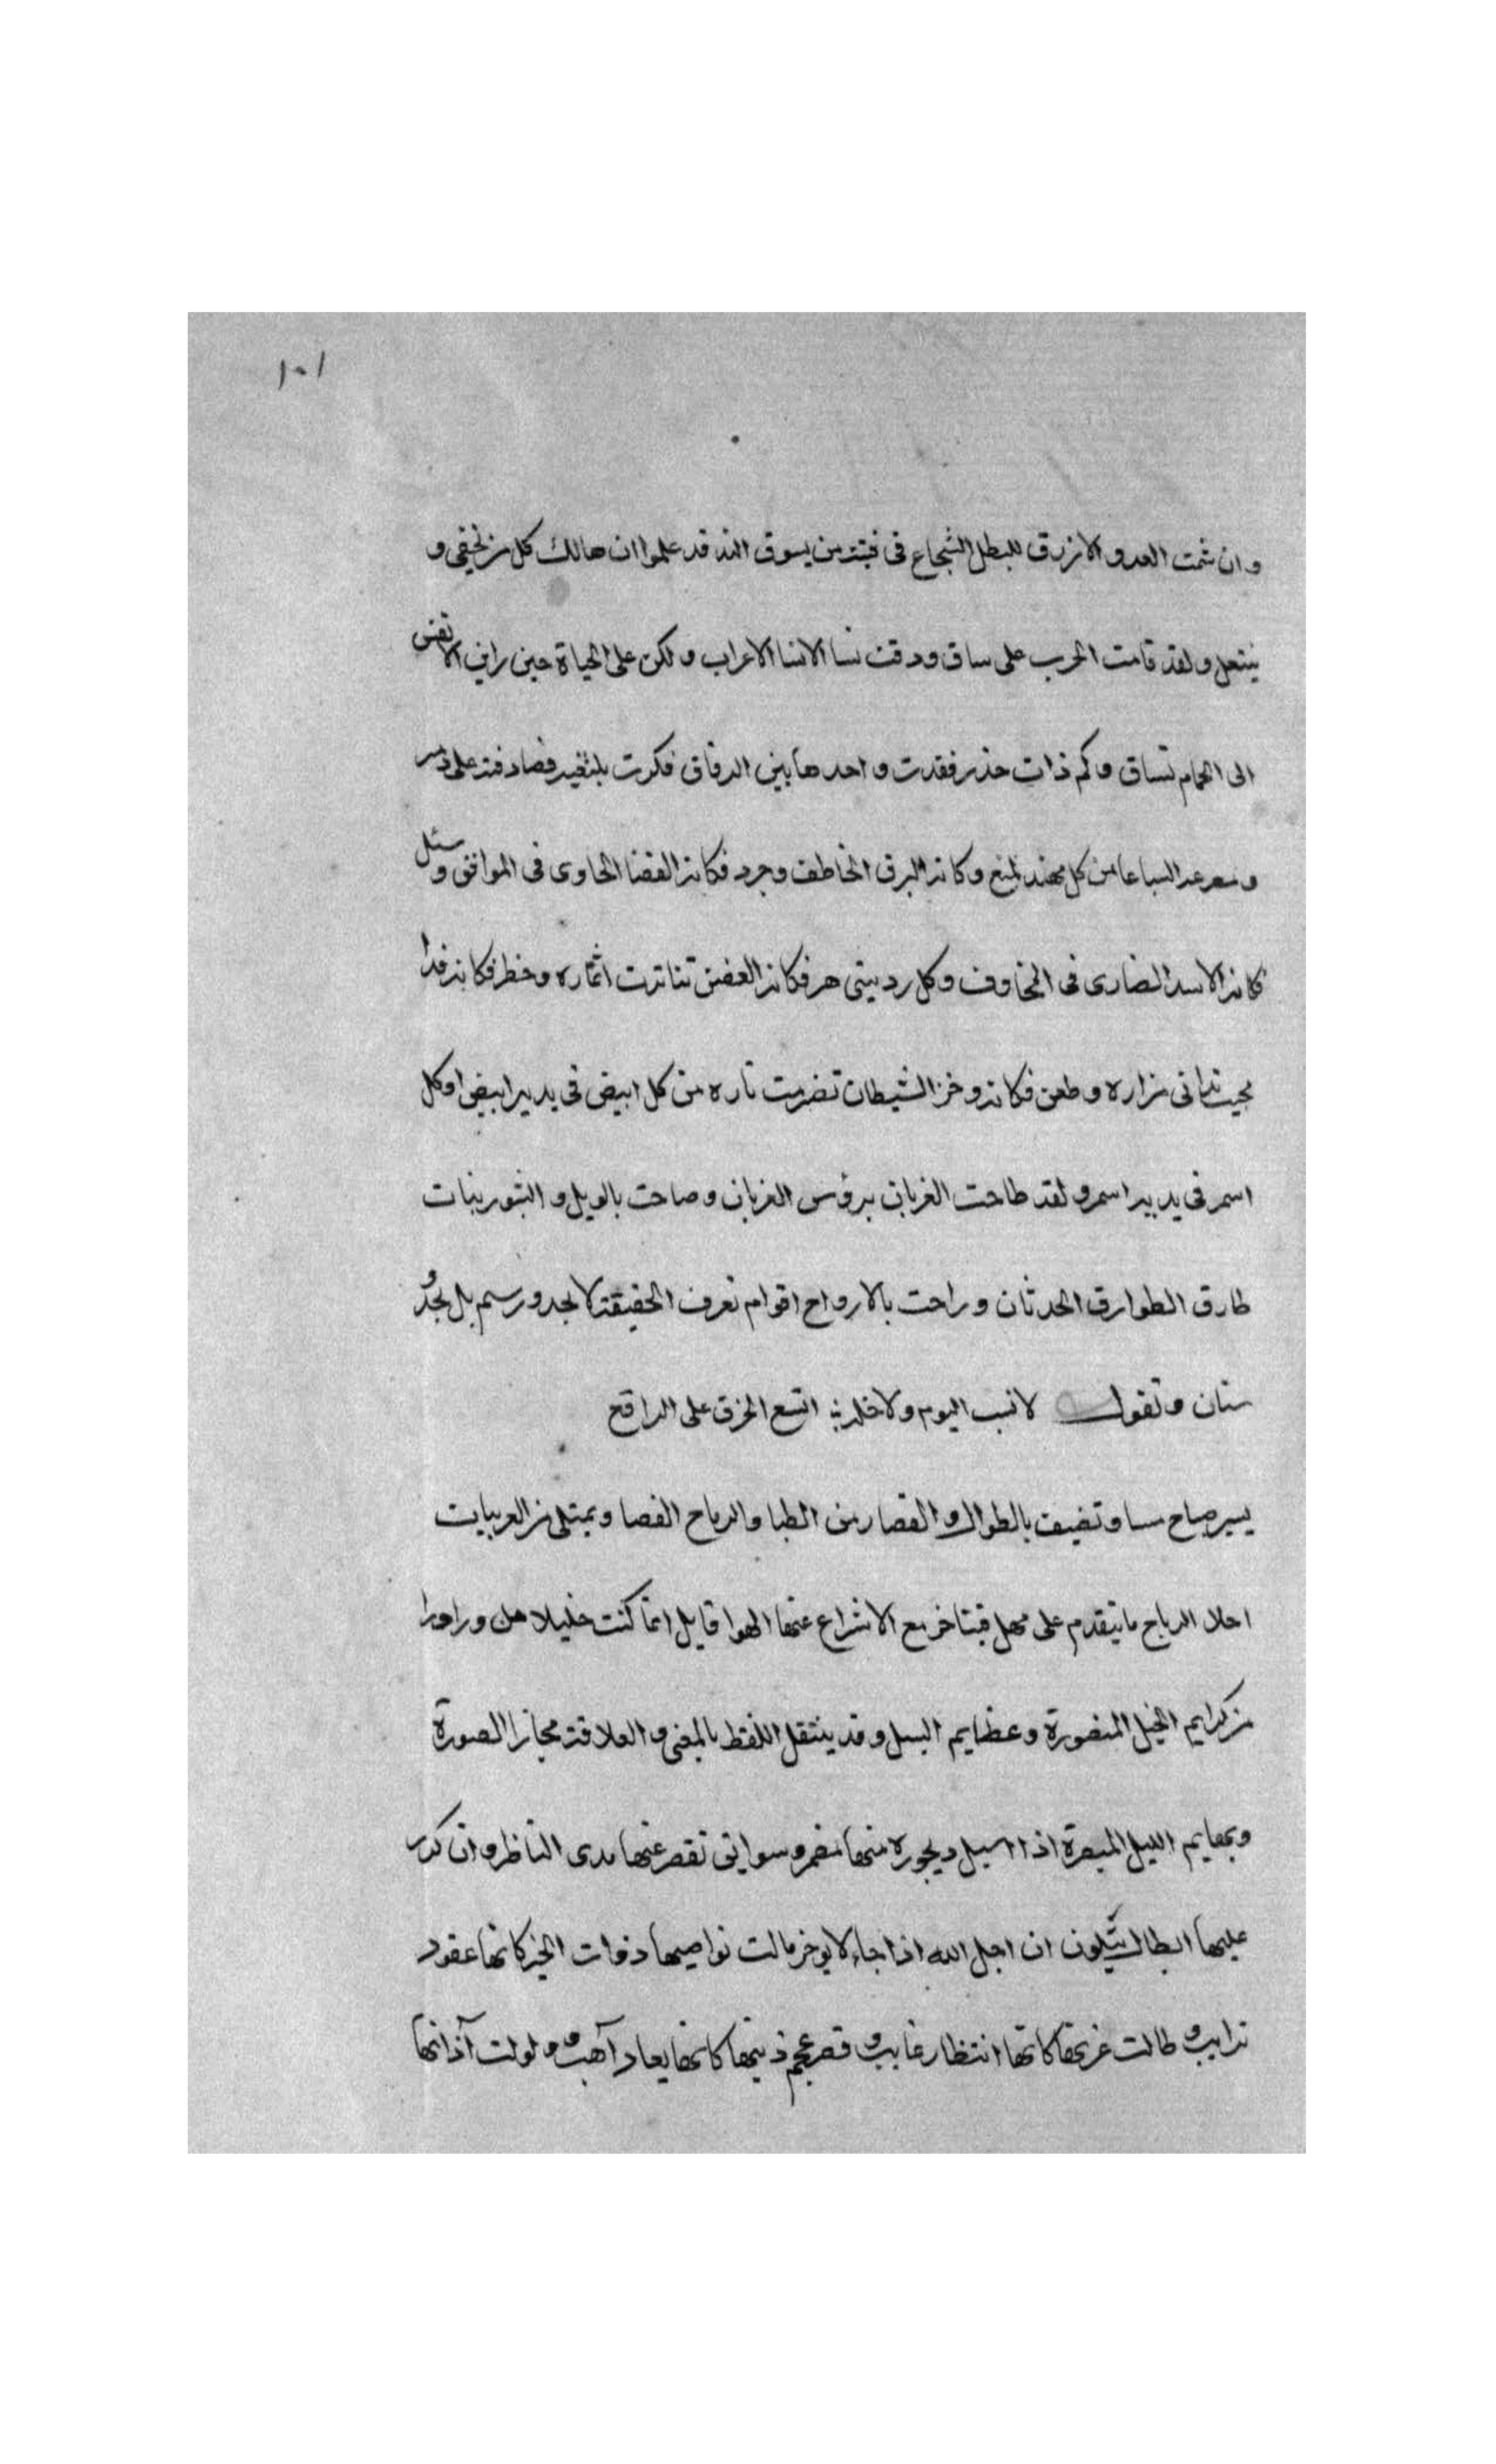 ١٠١
وان شمت العدو الازرق للبطل الشجاع فى فتية من يسوق الند قد علموا ان هالك كل من يحفى و
ينتعل ولقد قامت الحرب على ساق ودقت نسا الانسا الاعراب ولكن على الحياة حين راين الانفس
الى الحمام تساق وكم ذات حذر فقدت واحدها بين الرفاق فكرت بلتغيه فصادفته على
من كل مهند لمنع وكانه البرق الخاطف وجرد فكانه القضا الحاوى فى الموافق وسئل
فكانه الاسد الضارى فى المخاوف وكل ردينى هز فكانه الغصن تناثرت اثماره وخطر فكانه قدا
مجيب تدانى مزاره وطعن فكانه وخز الشيطان تضرمت ناره من كل ابيض فى يديه ابيض اوكل
اسمر فى يديه اسمر ولقد طاحت الغربان برؤس الغربان وصاحت بالويل و الثبور بنات
طارق الطوارق الحدثان وراحت بالارواح اقوام تعرف الحقيقة لا بحد ورسم بل بحد و
سنان وتقول لا نسب اليوم ولا خلة اتسع الخرق على الراقع
يسير صباح مسا وتضيف بالطوال و القصار من الظبا والرماح الفصا ويمتلى من العربيات
الرياح ما يتقدم على مهل فيتاخر مع الاسراع عنها الهوا قايل انما كنت خليلا من ورا ورا
من كرايم الخيل المنصورة وعظايم السيل وقد ينتقل اللفظ بالمعنى و العلاقة مجاز الصورة
الليل المبصرة اذا اسبل ديجوره منها مضمر وسوابق تقصر عنها مدى الناظر وان كدر
عليها ابطال يتلون ان اجل الله اذا جاء لا يوخر مالت نواصيها ذوات الخير كانها عقود
ترايب و طالت غررها كانها انتظار غايب و قصر عجم ذنبها كانها ميعاد آهب و لولت آذانها